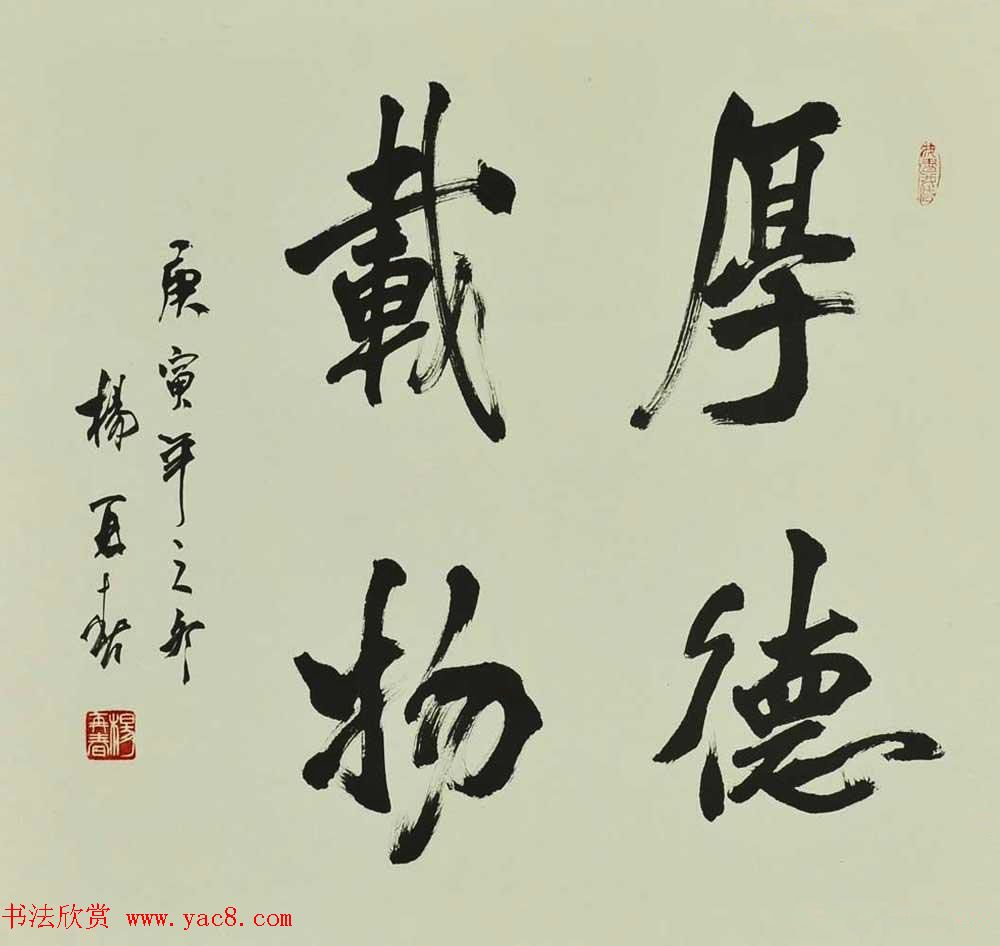 厚德
載物
庚寅年之
楊再春
楊再春
书法欣赏 www.yac8.com